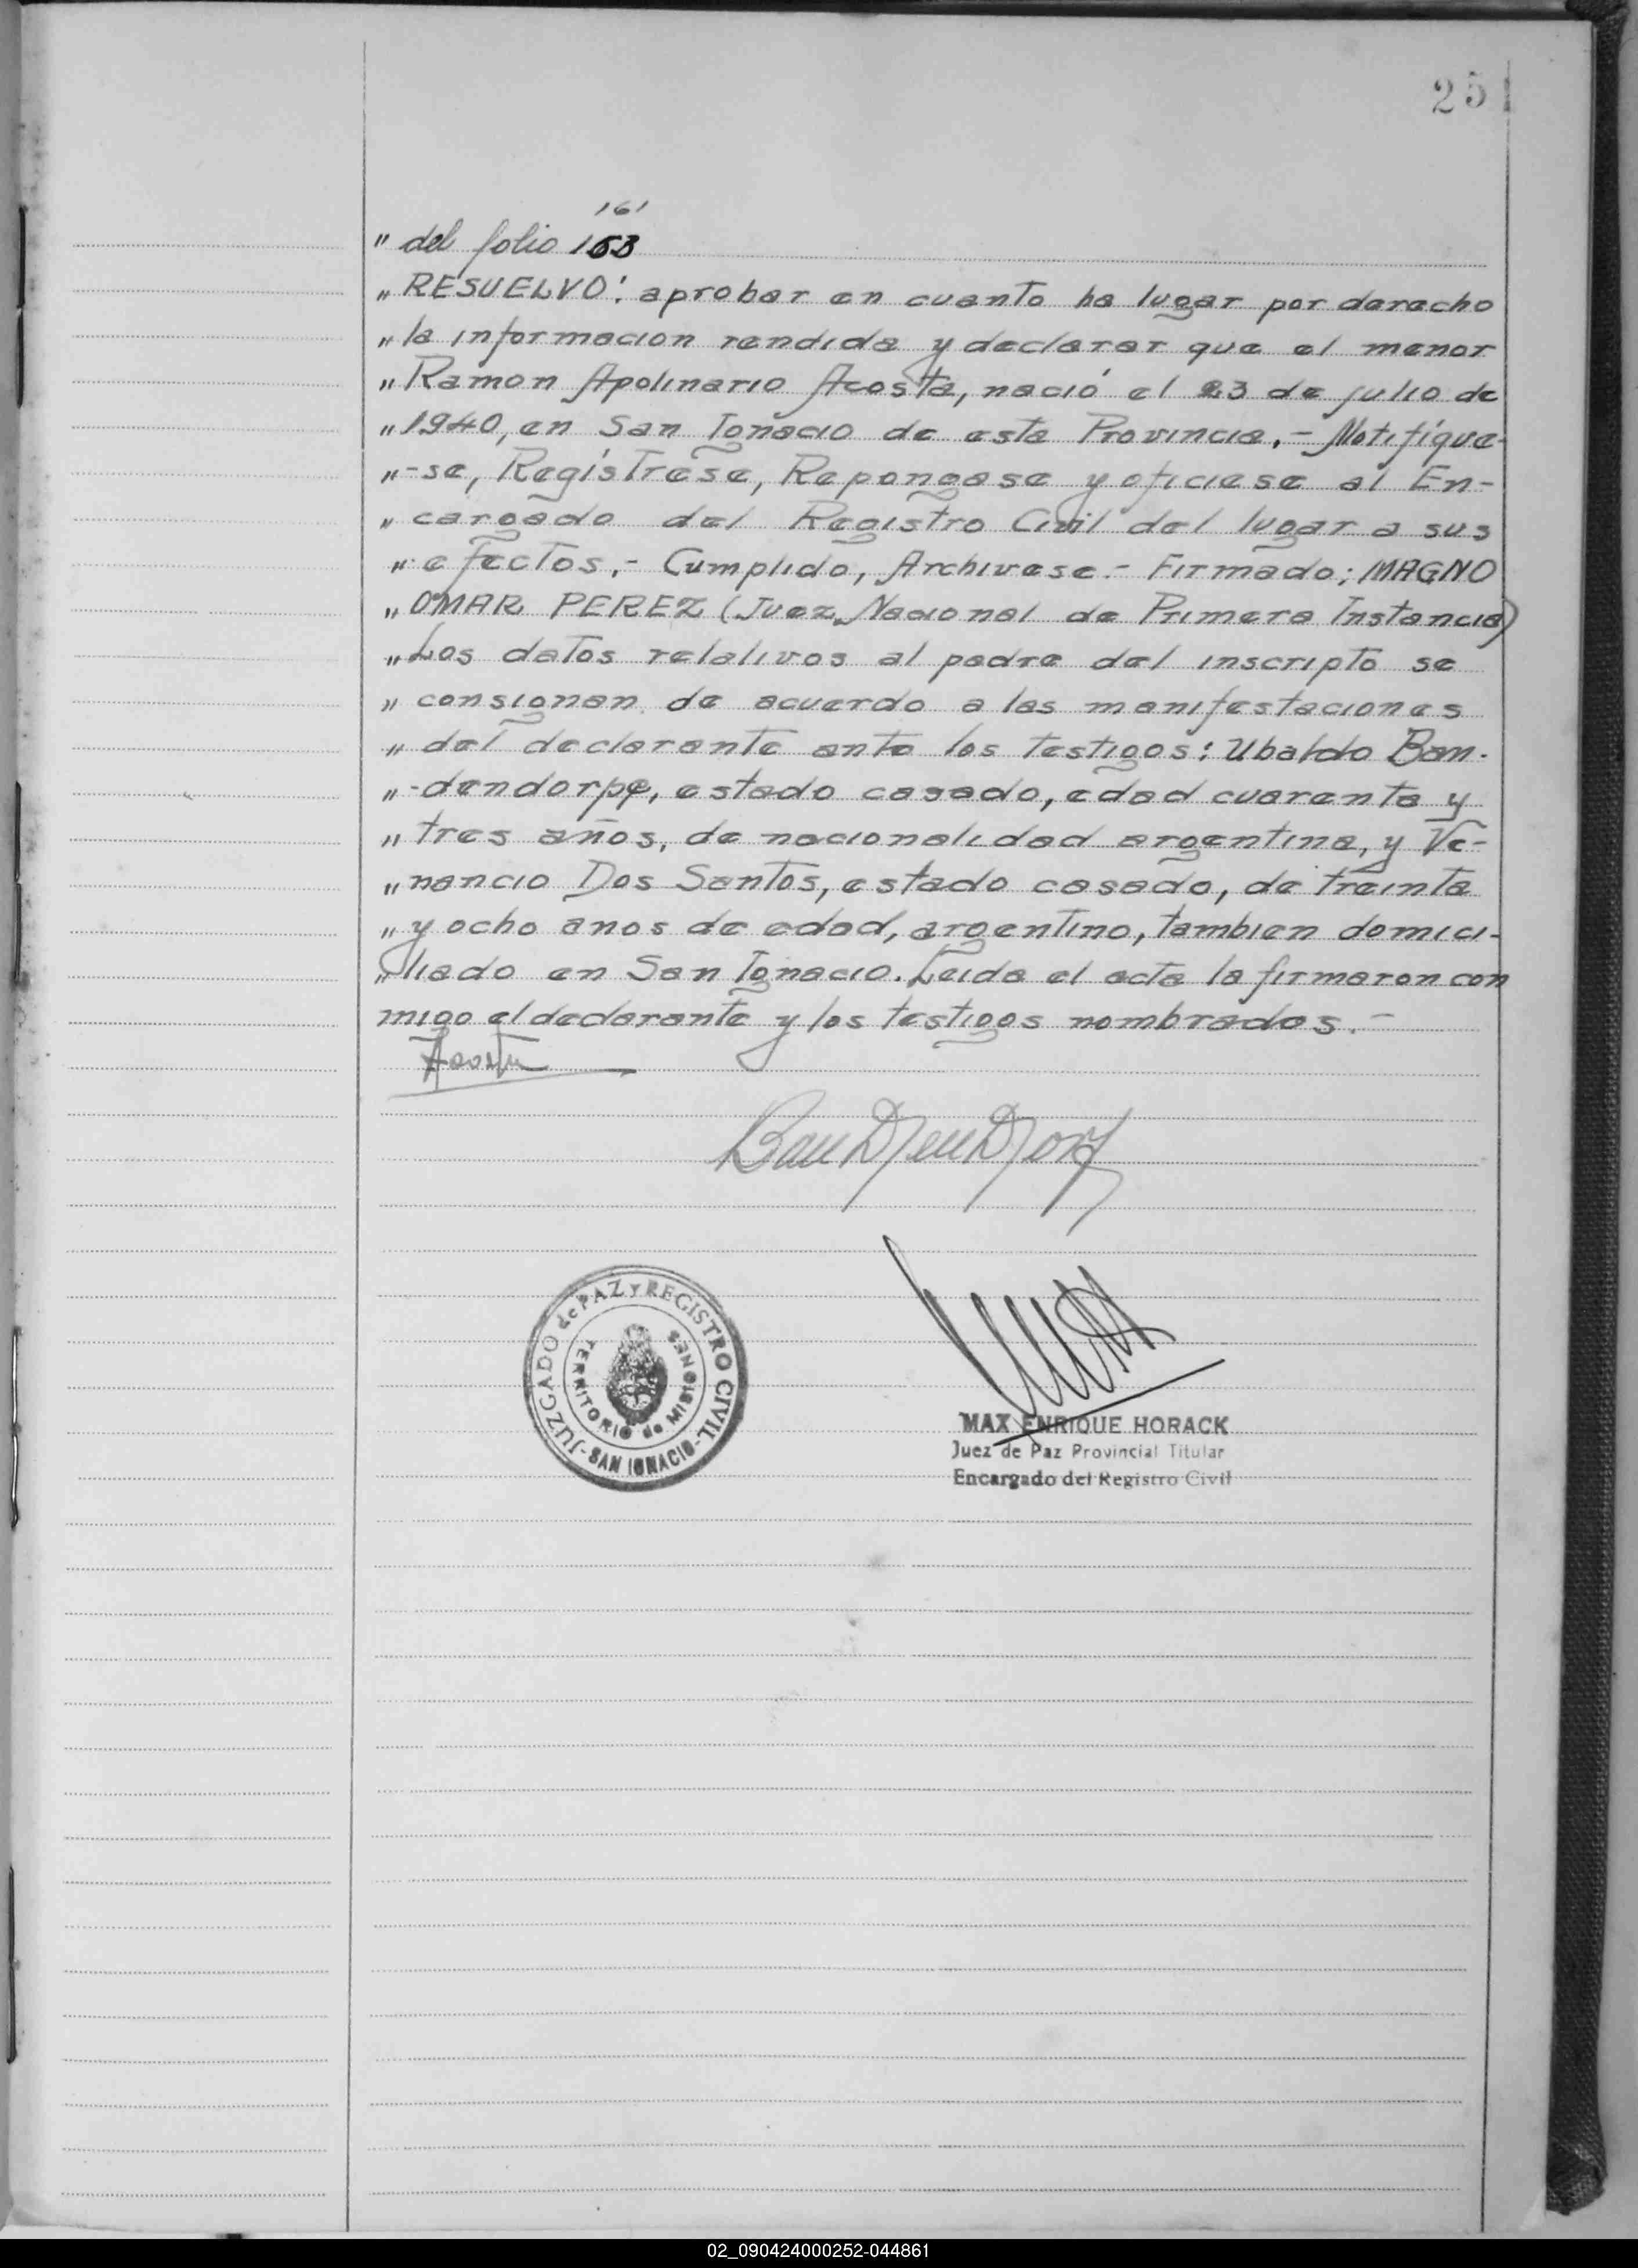 251
161
" del folio 163
" RESUELVO: aprobar en cuanto ha lugar por derecho
" la informacion rendida y declarar que el menor
" Ramon Apolinario Acosta, nació el 23 de julio de
" 1940, en San Ignacio de esta Provincia.- Notifíque-
" -se, Regístrese, Repongase y oficiese al En-
" cargado del Registro Civil del lugar a sus
" efectos.- Cumplido, Archivese.- Firmado; MAGNO
" OMAR PEREZ (Juez Nacional de Primera Instancia)
" Los datos relativos al padre del inscripto se
" consignan de acuerdo a las manifestaciones
" del declarante ante los testigos: Ubaldo Ban-
" -dendorpe, estado casado, edad cuarenta y
" tres años, de nacionalidad argentina, y Ve-
" nancio Dos Santos, estado casado, de treinta
" y ocho anos de edad, argentino, tambien domici-
" liado en San Ignacio. Leida el acta la firmaron con
migo el declarante y los testigos nombrados.-
Acosta
JUZGADO de PAZ y REGISTRO CIVIL
TERRITORIO de MISIONES
-SAN IGNACIO-
MAX ENRIQUE HORACK
Juez de Paz Provincial Titular
Encargado del Registro Civil
02_090424000252-044861